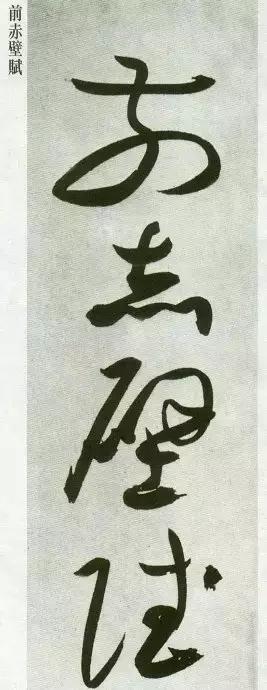 前赤壁賦
前赤壁賦